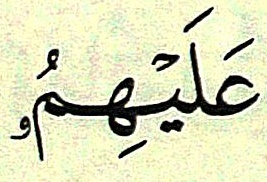 عَلَيۡهِمُۥ